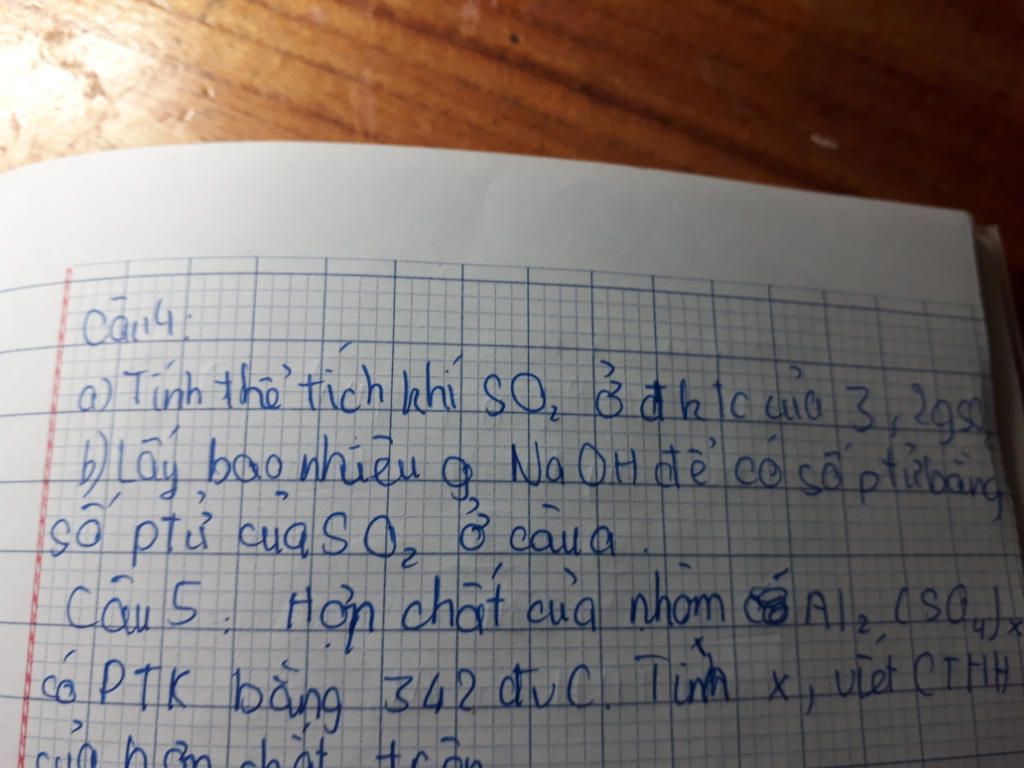 Câu 4:
a) Tính thể tích khí SO₂ ở đktc của 3,2g SO₂
b) Lấy bao nhiêu g NaOH để có số ptử bằng
số ptử của SO₂ ở câu a.
Câu 5. Hợp chất của nhôm Al₂(SO₄)ₓ
có PTK bằng 342 đvC. Tính x, viết CTHH
của hợp chất trên